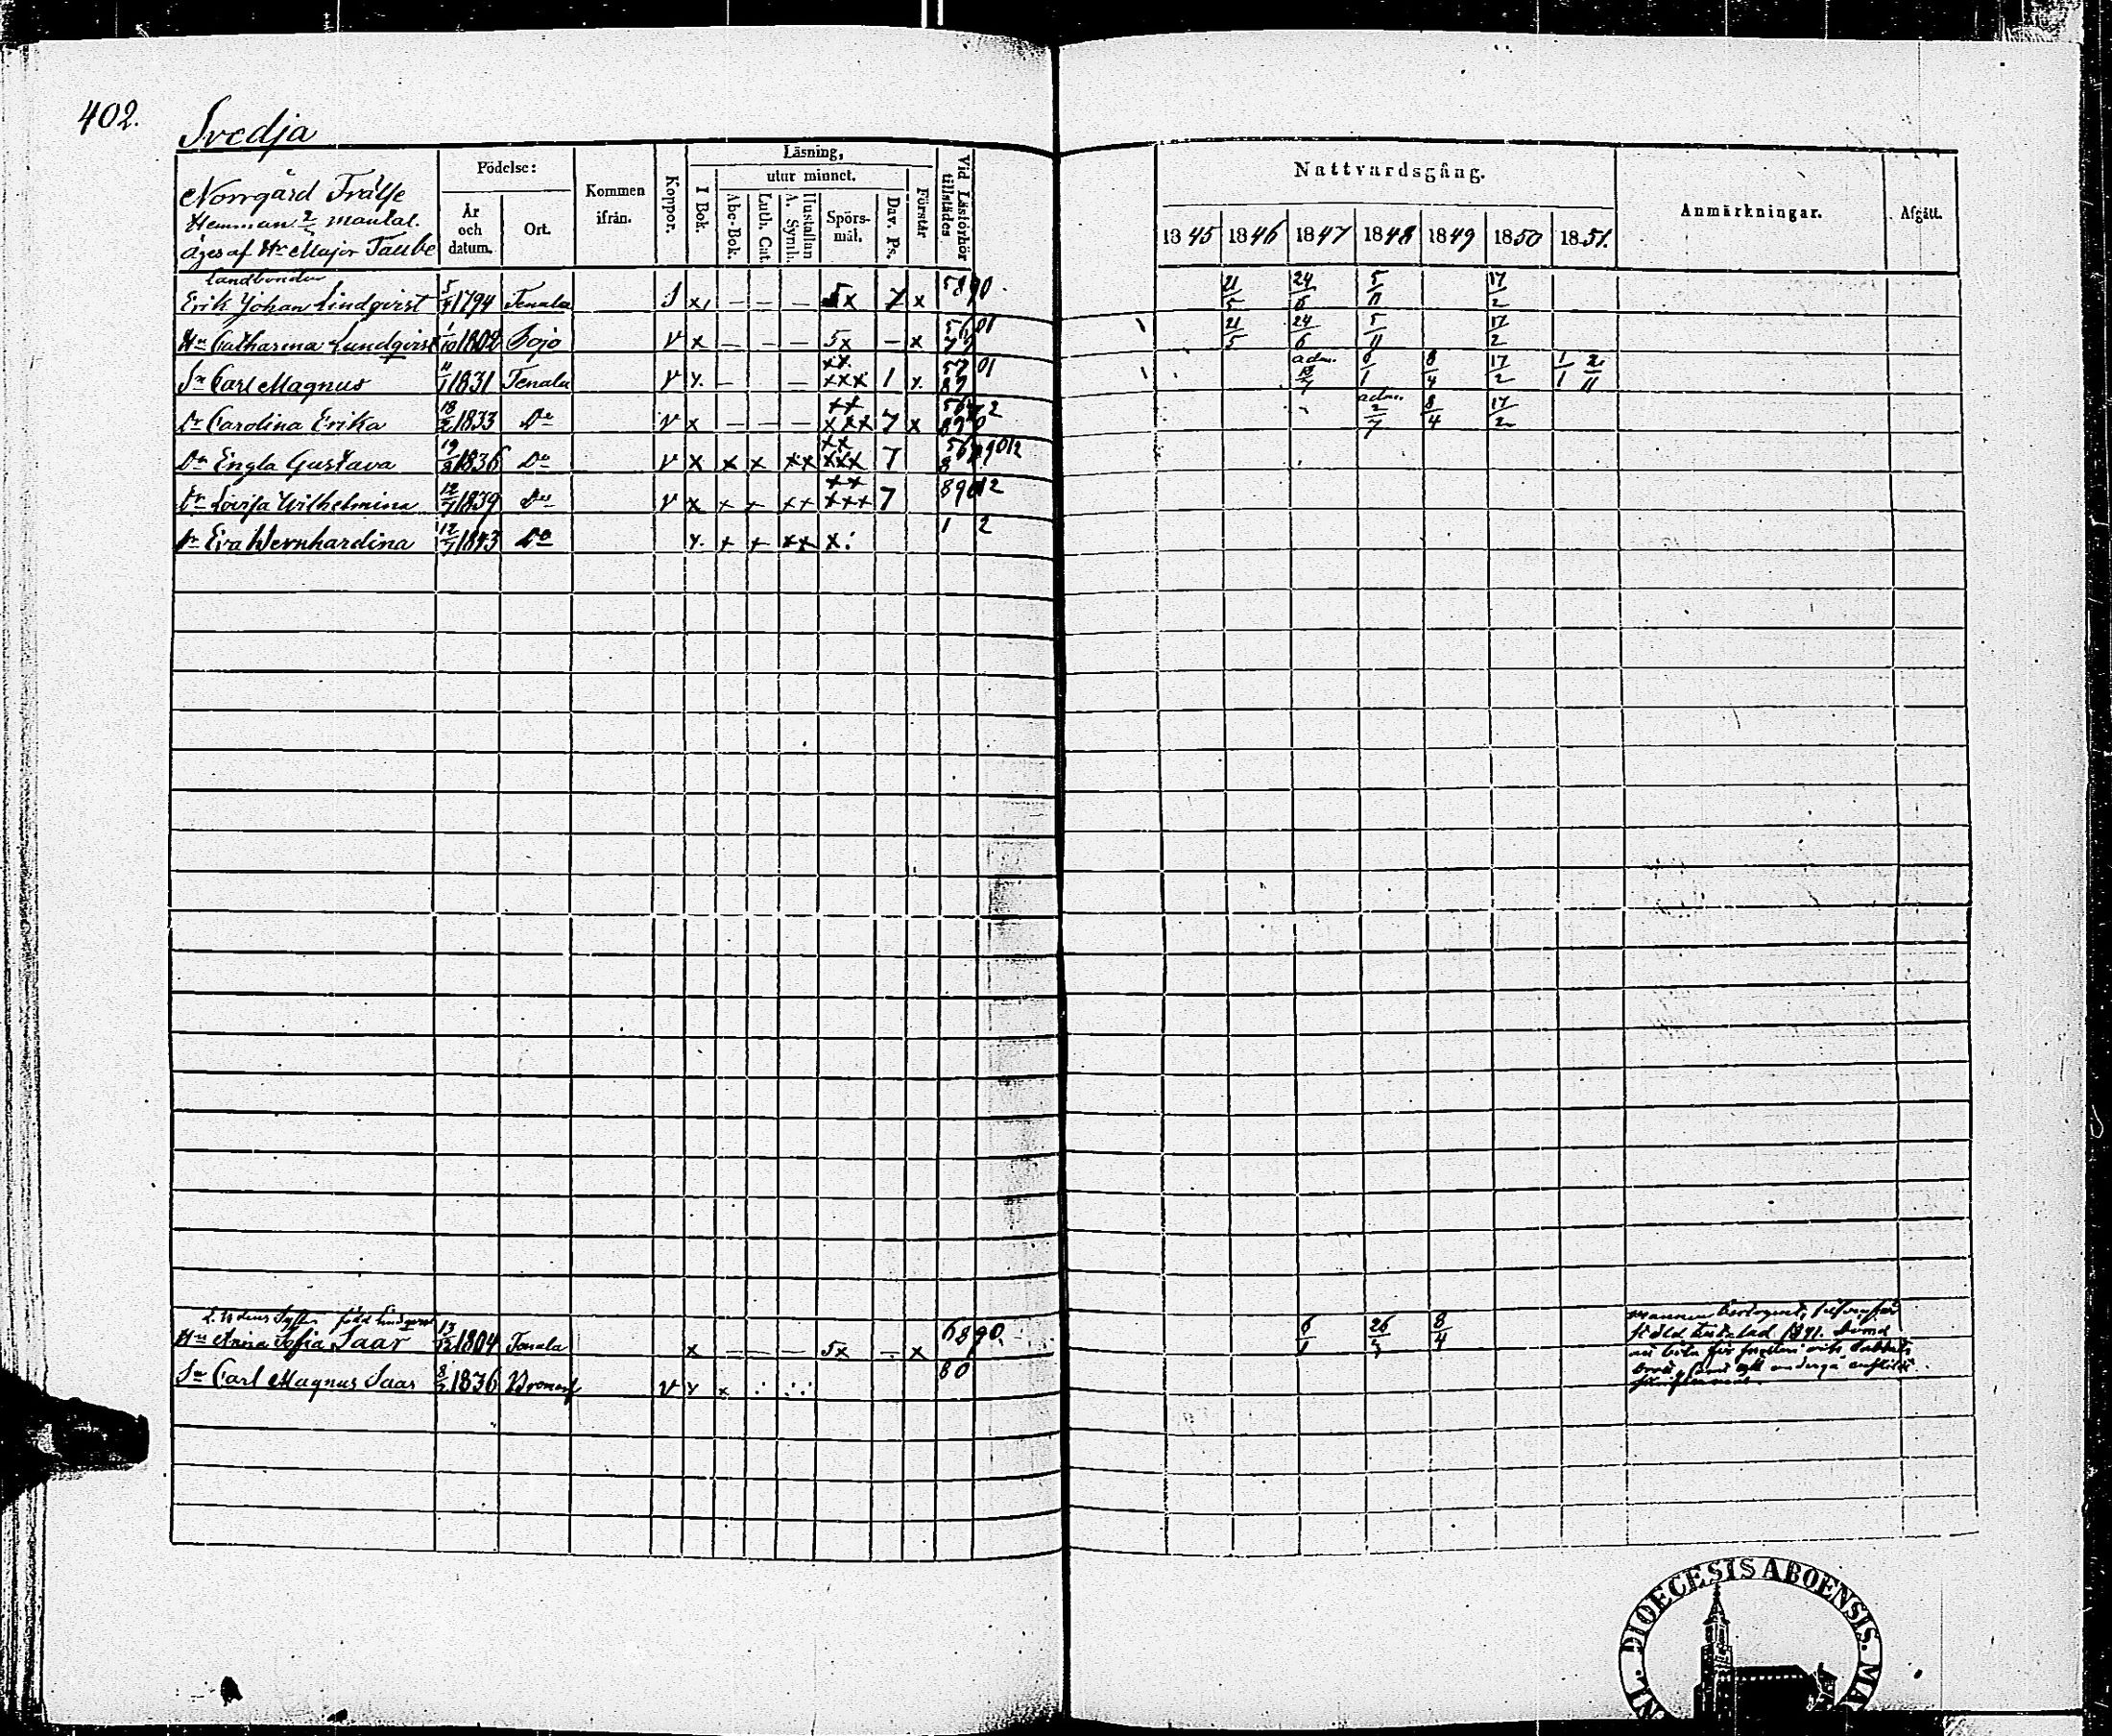 402.
Svedja
Norrgård Frälse
Hemman 2/3 mantal.
äges af Hr Major Taube
Födelse:
År och datum.
Ort.
Kommen ifrån.
Koppor.
Läsning,
I Bok.
utur minnet.
Abc-Bok.
Luth. Cat.
A. Symb.
Hustaflan
Spörsmål.
Dav. Ps.
Förstår
Vid Läsförhör tillstädes
Nattvardsgång.
1845 1846 1847 1848 1849 1850 1851.
Anmärkningar.
Afgått.
Landbonden
Erik Johan Lindqvist 1794 Tenala x — — — 5x 7 x 5890 21/5 24/6 5/11 17/2
Hu Catharina Lundqvist 1/10 1802 Pojo v x — — — 5x — x 21/5 24/6 5/11 17/2
Sn Carl Magnus 11/1 1831 Tenala v x — — xx xxx 1 x adm. 6/1 8/4 17/2 1/1 2/11
Dr Carolina Erika 18/2 1833 Do v x — — — xx xxx 7 x adm. 2/7 8/4 17/2
Dr Engla Gustava 19/8 1836 Do v x x x xx xx xxx 7
Dr Lovisa Wilhelmina 12/7 1839 Do v x x x xx xx xxx 7 89012
Dr Eva Wernhardina 12/7 1843 Do x x x xx x 1 2
Hu Anna Sofia Saar 13/12 1804 Tenala x — — — 5x — x 6890 6/1 26/3 8/4
Sn Carl Magnus Saar 1836 Bromarf v x x 80
DIOECESIS ABOENSIS.